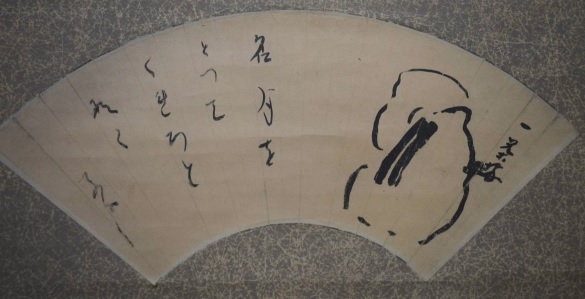 一茶
名月を
とつて
くれろと
なく